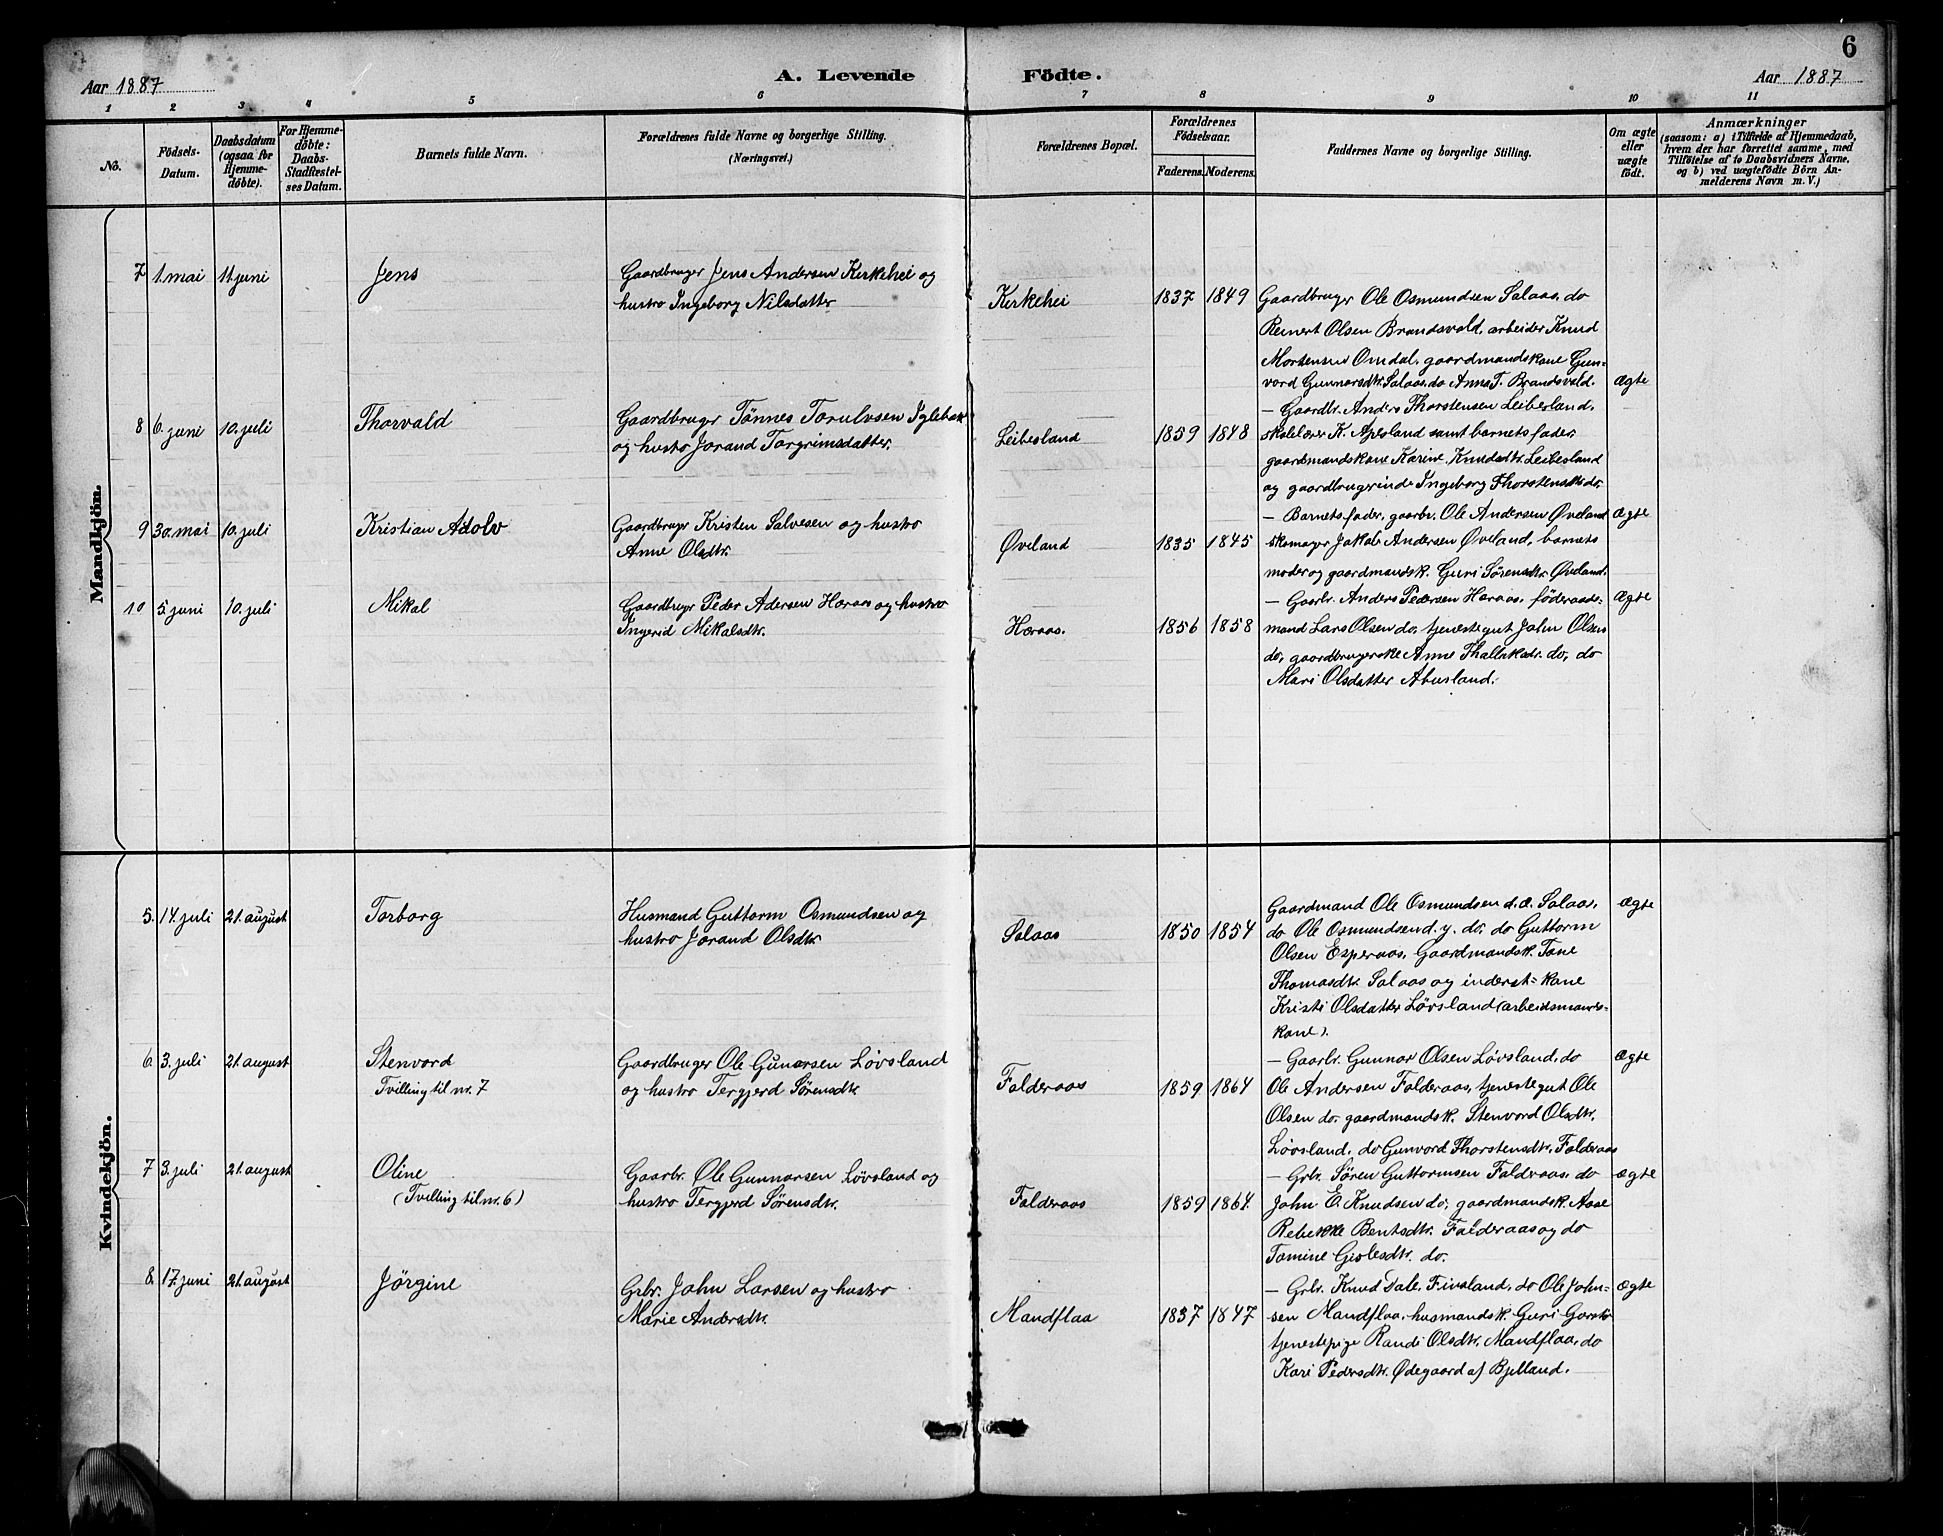 6
Aar 1887
A. Levende Fødte.
Aar 1887
1 2 3 4 5 6 7 8 9 10 11
No.
Fødsels-Datum.
Daabsdatum (ogsaa for Hjemme-døbte).
For Hjemme-døbte: Daabs-Stadfæstel-ses Datum.
Barnets fulde Navn.
Forældrenes fulde Navne og borgerlige Stilling.
(Næringsvei.)
Forældrenes Bopæl.
Forældrenes Fødselsaar.
Faderens. Moderens.
Faddernes Navne og borgerlige Stilling.
Om ægte eller uægte født.
Anmærkninger
(saasom: a) i Tilfælde af Hjemmedaab,
hvem der har forrettet samme, med
Tilføielse af to Daabsvidners Navne,
og b) ved uægtefødte Børn An-
melderens Navn m. V.)
Mandkjön.
7 1. mai 11. juni Jens
Gaardbruger Jens Andersen Kirkehei og
hustro Ingeborg Nilsdatter
Kirkehei 1837 1849
Gaardbruger Ole Osmundsen Salaas, do
Reinert Olsen Brandsvold, arbeider Knud
Mortensen Omdal, gaardmandskone Gun-
vord Gunnarsdtr. Salaas, do Anna T. Brandsvold.
ægte
8 6. juni 10. juli Thorvald
Gaardbruger Tönnes Torulvsen Iglebæk
og hustro Jorand Torgrimsdatter.
Leibesland 1859 1848
– Gaardbr. Anders Thorstensen Leibesland,
skolelærer K. Apesland samt barnets fader,
gaardmandskane Karine Knudsdtr. Leibesland
og gaardbrugerinde Ingeborg Thorstensdtr. do.
ægte
9 30. mai 10. juli Kristian Adolv
Gaardbruger Kristen Salvesen og hustro
Anne Olsdtr.
Øveland 1835 1845
– Barnets fader, gaarbr. Ole Andersen Øveland
skomager Jakob Andersen Øveland, barnets
moder og gaardmandsk. Guri Sörensdtr. Øveland.
10 5. juni 10. juli Mikal
Gaardbrugr Peder Adersen Høraas og hustro
Ingerid Mikalsdtr.
Høraas. 1856 1858
– Gaarbr. Anders Pedersen Høraas, föderaads-
mand Lars Olsen do, tjenestegut John Olsen
do, gaardbrugerske Anne do, do
Mari Olsdatter Abusland.
ægte
Kvindekjön.
5. 14. juli 21. august Torborg
Husmand Guttorm Osmundsen og
hustro Jorand Olsdtr.
Salaas 1850 1854
Gaardmand Ole Osmundsen d. æ. Salaas,
do Ole Osmundsen d. y. do, do Guttorm
Olsen Esperaas, Gaardmandsk. Tone
Thomasdtr. Salaas og inderst-kane
Kristi Olsdatter Lövsland (arbeidsmands-
kone).
ægte
6. 3. juli 21. august Stenvord
Tvilling til nr. 7
Gaardbruger Ole Gunarsen Lövsland
og hustro Tergjerd Sörensdtr.
Falderaas 1859 1864
– Gaarbr. Gunnar Olsen Lövsland, do
Ole Andersen Falderaas, tjenestegut Ole
Olsen do, gaardmandsk. Stenvord Olsdtr.
Lövsland, do Gunvord Thorstensdtr. Falderaas
ægte
7 3. juli 21. august Oline
(Tvilling til nr. 6)
Gaarbr. Ole Gunnarsen Lövsland og
hustro Tergjerd Sörensdtr.
Falderaas 1859 1864.
– Grbr. Sören Guttormsen Faldraas, do
John E. Knudsen do, gaardmandsk. Aase
Rebekke Bentsdtr. Falderaas og do
Tomine Gislesdtr. do.
ægte
8. 17. juni 21. august Jörgine
Grbr. John Larsen og hustro
Marie Andersdtr.
Mandflaa 1837 1847
– Grbr. Knud Dale, Finsland, do Ole John-
sen Mandflaa, husmandsk. Guri
tjenestepige Randi Olsdtr. Mandflaa, do
Kari Pedersdtr. Ødegaard af Bjelland.
ægte